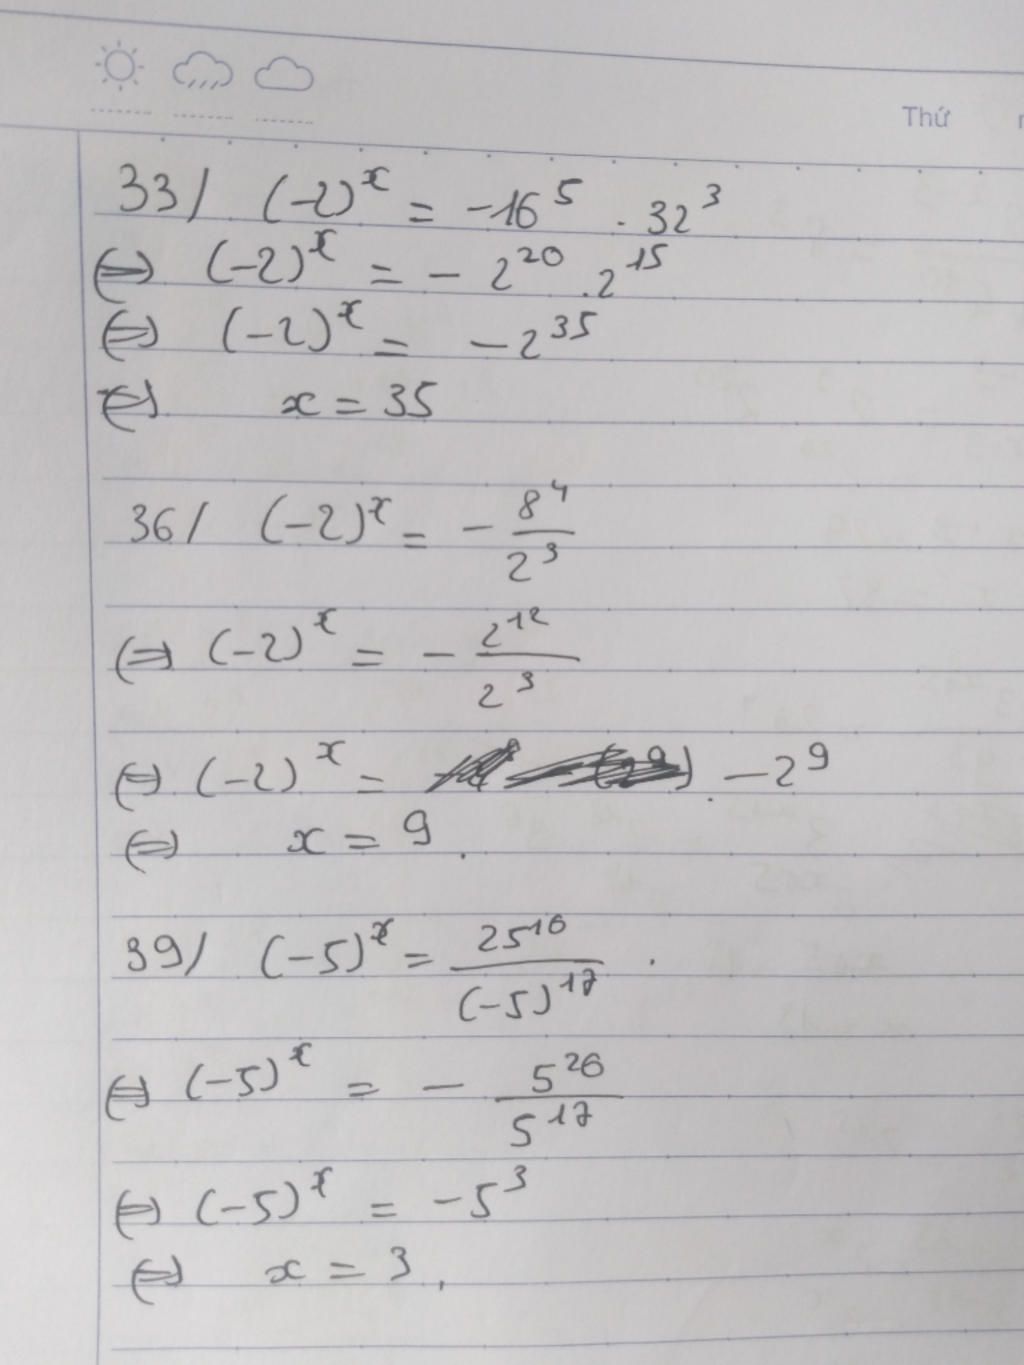 Thứ
33/ (-2)^x = -16^5 . 32^3
(=) (-2)^x = - 2^20 . 2^15
(=) (-2)^x = -2^35
(=) x = 35
36/ (-2)^x = - 8^4 / 2^3
(=) (-2)^x = - 2^12 / 2^3
(=) (-2)^x = -2^9
(=) x = 9.
39/ (-5)^x = 25^10 / (-5)^17 .
(=) (-5)^x = - 5^20 / 5^17
(=) (-5)^x = -5^3
(=) x = 3,